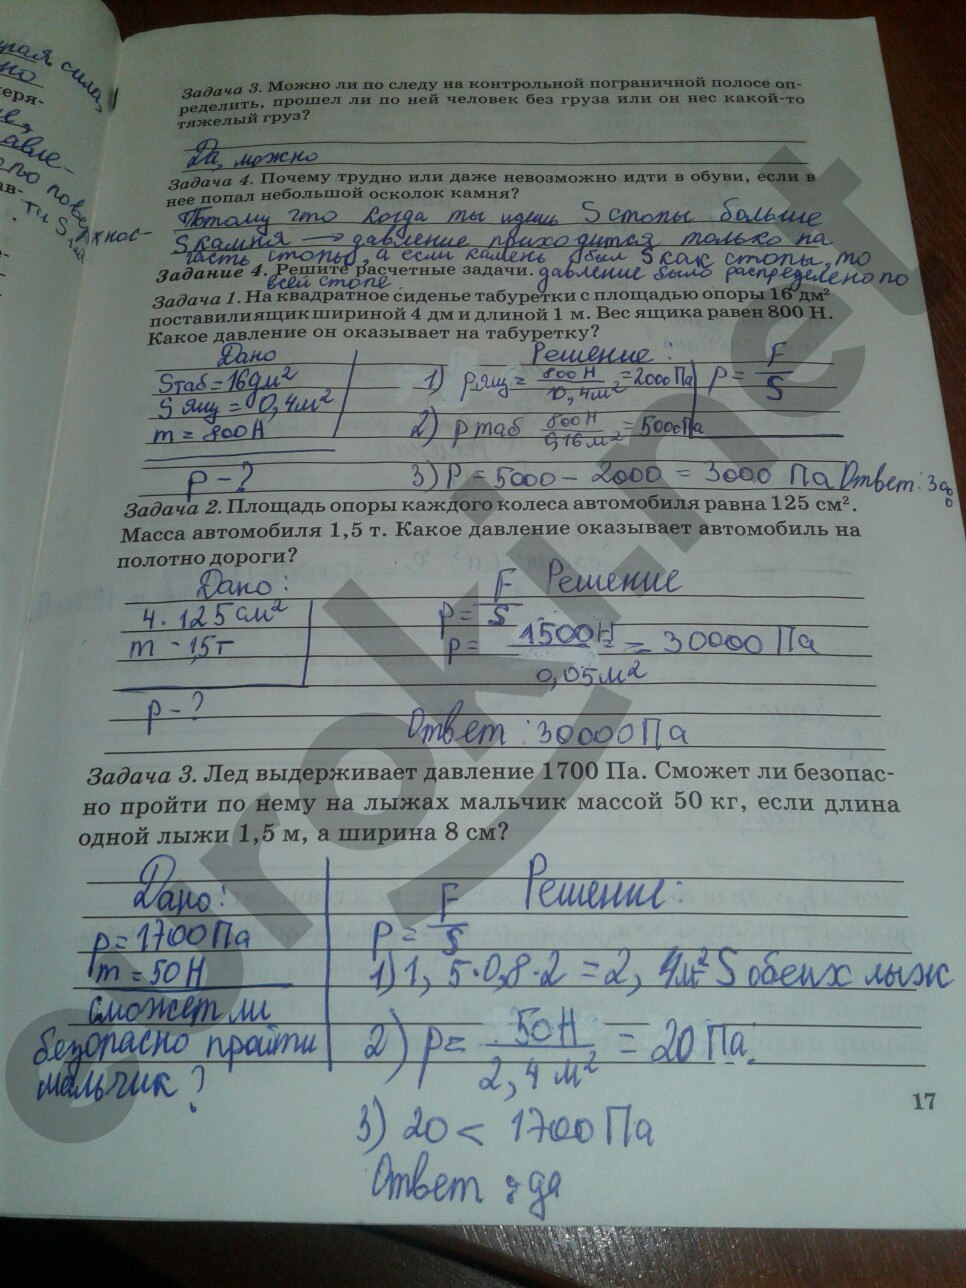 Задача 3. Можно ли по следу на контрольной пограничной полосе оп-
ределить, прошел ли по ней человек без груза или он нес какой-то
тяжелый груз?
Да, можно
Задача 4. Почему трудно или даже невозможно идти в обуви, если в
нее попал небольшой осколок камня?
Потому что когда ты идешь S стопы больше
S камня → давление приходится только на
часть стопы, а если камень был S как стопы, то
Задание 4. Решите расчетные задачи. давление было распределено по
всей стопе.
Задача 1. На квадратное сиденье табуретки с площадью опоры 16 дм²
поставили ящик шириной 4 дм и длиной 1 м. Вес ящика равен 800 Н.
Какое давление он оказывает на табуретку?
Дано Решение:
Sтаб = 16дм² 1) р ящ = 800 Н / 0,4м² = 2000 Па p = F/S
S ящ = 0,4м²
m = 800 Н 2) р таб 800 Н / 0,16 м² = 5000Па
р - ? 3) р = 5000 - 2000 = 3000 Па Ответ: 3000
Задача 2. Площадь опоры каждого колеса автомобиля равна 125 см².
Масса автомобиля 1,5 т. Какое давление оказывает автомобиль на
полотно дороги?
Дано: p = F/S Решение
4 · 125 см²
m - 1,5т р = 1500Н / 0,05м² = 30000 Па
р - ?
Ответ: 30000 Па
Задача 3. Лед выдерживает давление 1700 Па. Сможет ли безопас-
но пройти по нему на лыжах мальчик массой 50 кг, если длина
одной лыжи 1,5 м, а ширина 8 см?
Дано: Решение:
р = 1700 Па p = F/S
m = 50 Н 1) 1,5·0,8·2 = 2,4м² S обеих лыж
сможет ли
безопасно пройти 2) р = 50 Н / 2,4 м² = 20 Па.
мальчик?
17
3) 20 < 1700 Па
Ответ: да
euroki.net